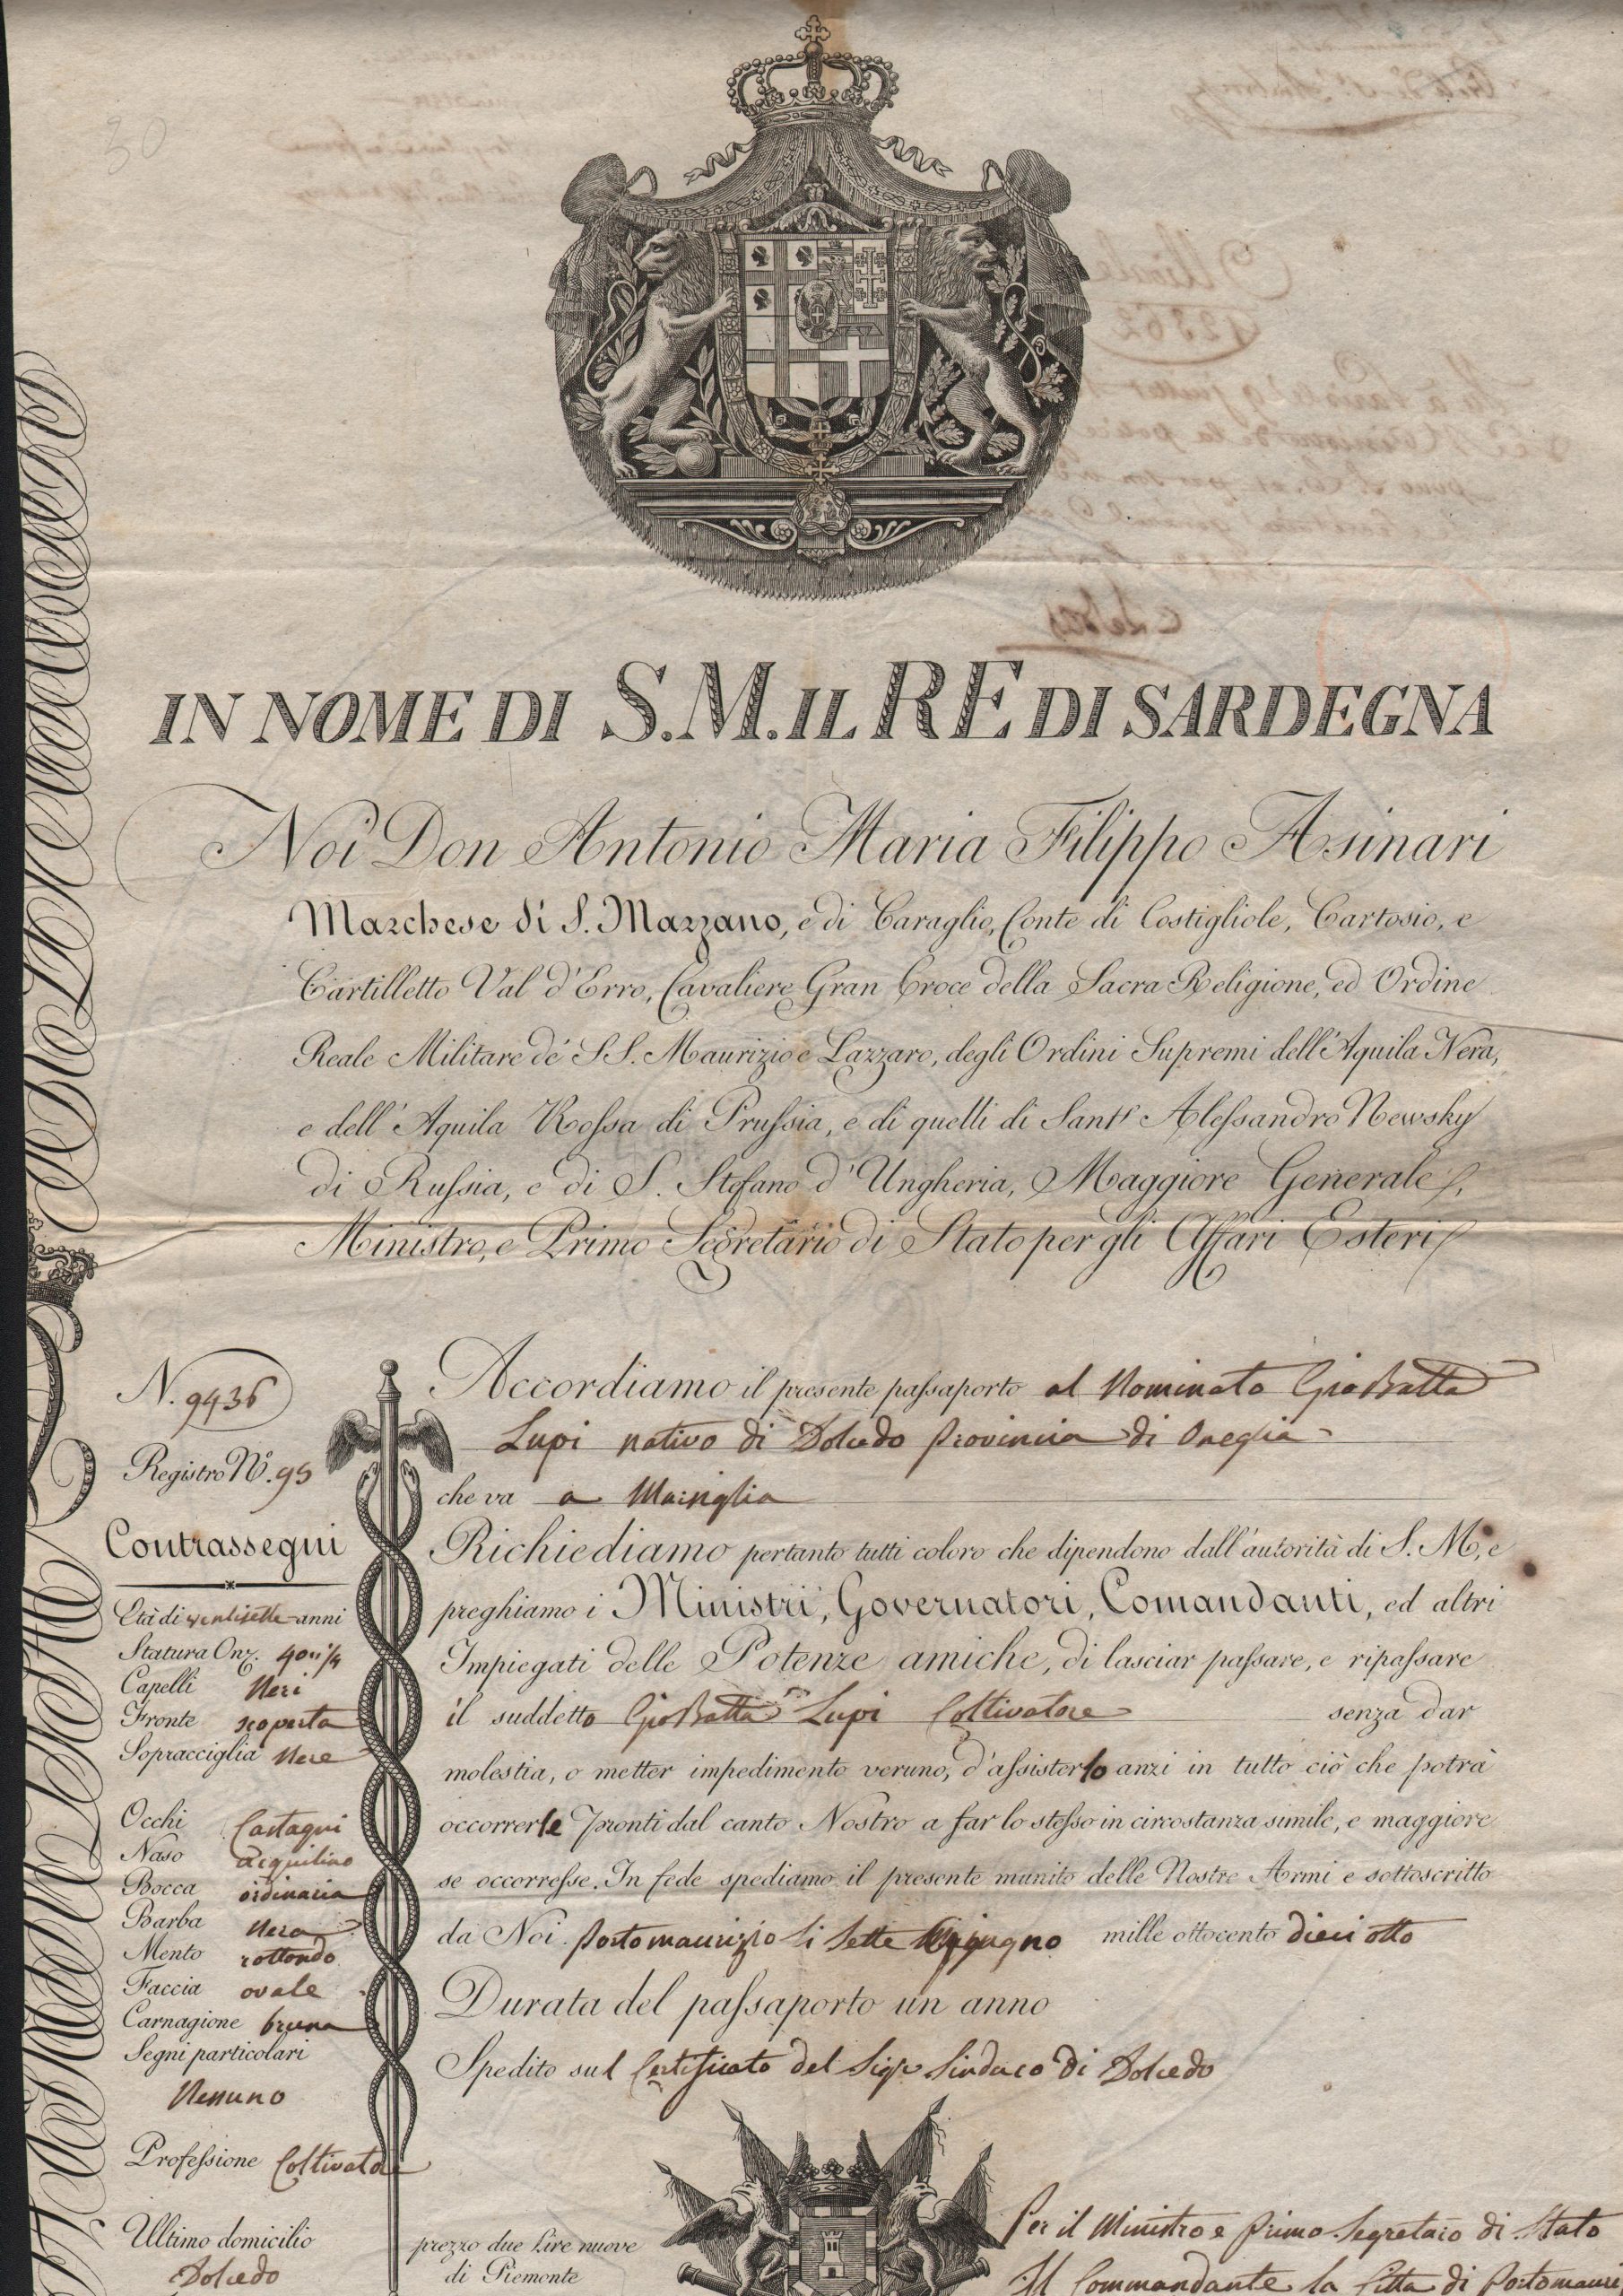 30
IN NOME DI S.M. IL RE DI SARDEGNA
Noi Don Antonio Maria Filippo Asinari
Marchese di S. Marzano, e di Caraglio, Conte di Costigliole, Cartosio, e
Cartilletto Val d'Erro, Cavaliere Gran Croce della Sacra Religione, ed Ordine
Reale Militare de' SS. Maurizio e Lazzaro, degli Ordini Supremi dell'Aquila Nera,
e dell'Aquila Rossa di Prussia, e di quelli di Sant' Alessandro Newsky
di Russia, e di S. Stefano d'Ungheria, Maggiore Generale,
Ministro, e Primo Segretario di Stato per gli Affari Esteri
N. 9436
Registro N.º 95
Contrassegni
Età di ventisette anni
Statura Onz.
Capelli Neri
Fronte scoperta
Sopracciglia Nere
Occhi Castagni
Naso acquilino
Bocca ordinaria
Barba Nera
Mento rottondo
Faccia ovale
Carnagione bruna
Segni particolari
Nessuno
Professione Coltivatore
Ultimo domicilio
Dolcedo
Accordiamo il presente passaporto al Nominato GioBatta
Lupi nativo di Dolcedo Provincia di Oneglia
che va a Marsiglia
Richiediamo pertanto tutti coloro che dipendono dall'autorità di S. M., e
preghiamo i Ministri, Governatori, Comandanti, ed altri
Impiegati delle Potenze amiche, di lasciar passare, e ripassare
il suddetto GioBatta Lupi Coltivatore senza dar
molestia, o metter impedimento veruno, d'assisterlo anzi in tutto ciò che potrà
occorrerle Pronti dal canto Nostro a far lo stesso in circostanza simile, e maggiore
se occorresse. In fede spediamo il presente munito delle Nostre Armi e sottoscritto
da Noi. Portomaurizio li sette Giugno mille ottocento dieci otto
Durata del passaporto un anno
Spedito sul Certificato del Sigr Sindaco di Dolcedo
prezzo due Lire nuove
di Piemonte
Per il Ministro e Primo Segretaro di Stato
Il Commandante la Citta di Portomauri